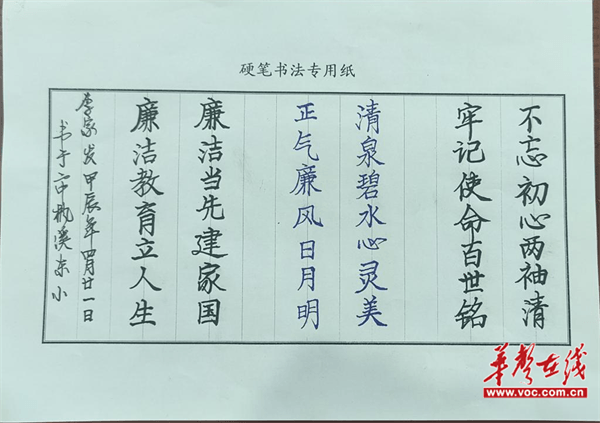 硬笔书法专用纸
不忘初心两袖清
牢记使命百世铭
清泉碧水心灵美
正气廉风日月明
廉洁当先建家国
廉洁教育立人生
李家发甲辰年四月廿一日
书于中枫溪东小
华声在线
www.voc.com.cn